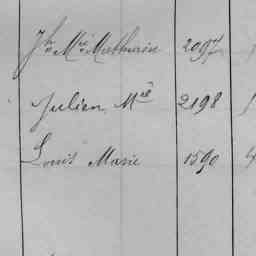 Jh Mie Mathurin 2097
Julien Mie 2198
Louis Marie 1590